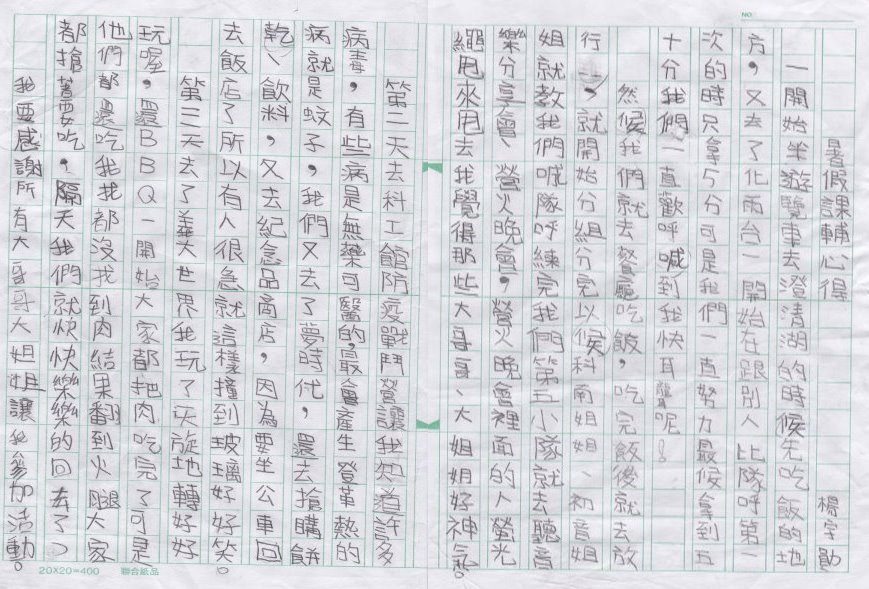 NO.
暑假課輔心得
楊宇勛
一開始坐遊覽車去澄清湖的時候先吃飯的地
方,又去了化雨台一開始在跟別人比隊呼第一
次的時只拿5分可是我們一直努力最候拿到五
十分我們一直歡呼喊到我快耳聾呢!
然候我們就去餐廳吃飯,吃完飯後就去放
行李,就開始分組分完以候科南姐姐、初音姐
姐就教我們喊隊呼練完我們第五小隊就去聽音
樂分享會、營火晚會,營火晚會裡面的人螢光
繩甩來甩去我覺得那些大哥哥、大姐姐好神氣。
第二天去科工館防疫戰鬥營讓我知道許多
病毒,有些病是無藥可醫的,最會產生登革熱的
病就是蚊子,我們又去了夢時代,還去搶購餅
乾、飲料,又去紀念品商店,因為要坐公車回
去飯店了所以有人很急就這樣撞到玻璃好好笑。
第三天去了義大世界我玩了天旋地轉好好
玩喔,還BBQ一開始大家都把肉吃完了可是
他們都還吃我找都沒找到肉結果翻到火腿大家
都搶著要吃,隔天我們就快快樂樂的回去了
我要感謝所有大哥哥大姐姐讓我參加活動。
20X20=400 聯合紙品